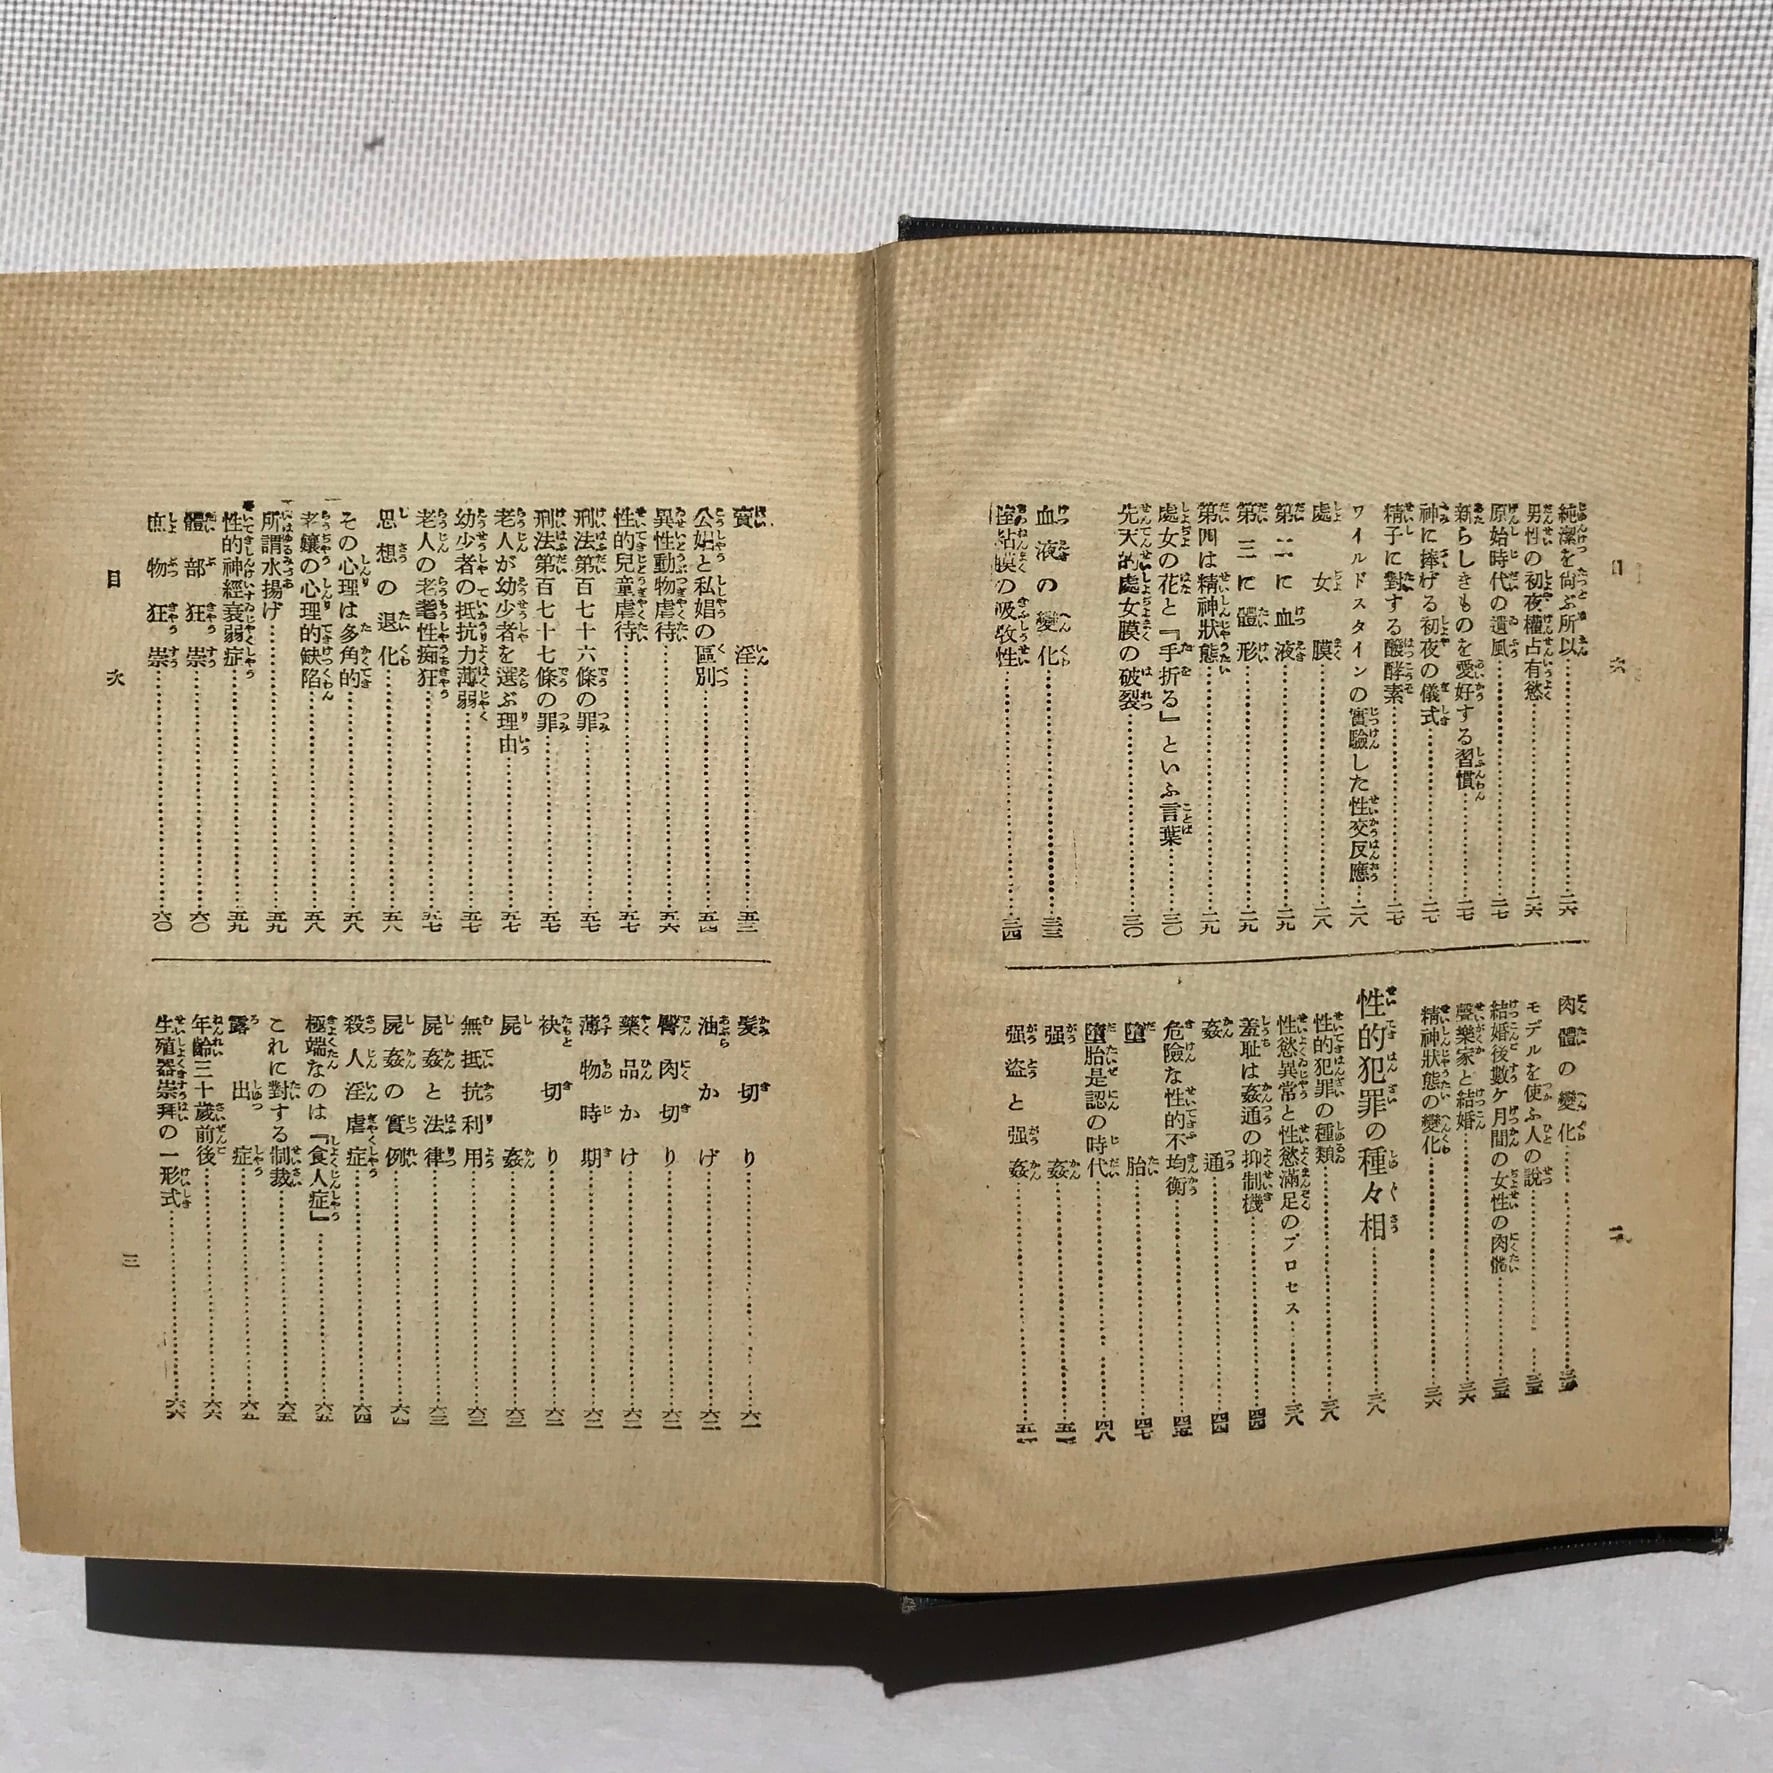 目次
二
純潔を尚ぶ所以……二六
男性の初夜權占有慾……二六
原始時代の遺風……二七
新らしきものを愛好する習慣……二七
神に捧げる初夜の儀式……二七
精子に對する醱酵素……二七
ワイルドスタインの實驗した性交反應……二八
處女膜……二八
第二に血液……二九
第三に體形……二九
第四は精神狀態……二九
處女の花と『手折る』といふ言葉……三〇
先天的處女膜の破裂……三〇
血液の變化……三三
膣粘膜の吸收性……三四
肉體の變化……三五
モデルを使ふ人の說……三五
結婚後數ケ月間の女性の肉體……三五
聲樂家と結婚……三六
精神狀態の變化……三六
性的犯罪の種々相……三八
性的犯罪の種類……三八
性慾異常と性慾滿足のプロセス……三八
羞恥は姦通の抑制機……四四
姦通……四四
危險な性的不均衡……四五
墮胎……四七
墮胎是認の時代……四八
强姦……五一
强盜と强姦……五一
賣淫……五三
公娼と私娼の區別……五四
異性動物虐待……五六
性的兒童虐待……五七
刑法第百七十六條の罪……五七
刑法第百七十七條の罪……五七
老人が幼少者を選ぶ理由……五七
幼少者の抵抗力薄弱……五七
老人の老耄性痴狂……五七
思想の退化……五八
その心理は多角的……五八
老孃の心理的缺陷……五八
所謂水揚げ……五九
性的神經衰弱症……五九
體部狂崇……六〇
庶物狂崇……六〇
髮切り……六一
油かげ……六二
臀肉切り……六二
藥品かけ……六二
薄物時期……六二
袂切り……六二
屍姦……六三
無抵抗利用……六三
屍姦と法律……六三
屍姦の實例……六四
殺人淫虐症……六四
極端なのは『食人症』……六五
これに對する制裁……六五
露出症……六五
年齡三十歲前後……六六
生殖器崇拜の一形式……六六
目次
三